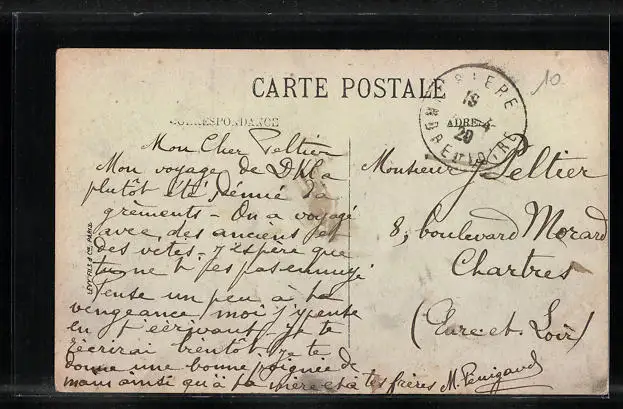 CARTE POSTALE
CORRESPONDANCE
ADRESSE
10
19
20
INDRE ET LOIRE
Mon Cher Peltier
Mon voyage de a
plutôt été dénué d'a
gréments - On a voyagé
avec des anciens et
des vetés. J'espère que
tu ne t'es pas ennuyé
Pense un peu à ta
vengeance, moi j'y pense
en t'écrivant, je te
réécrirai bientôt. Je te
donne une bonne poignée de
main ainsi qu'à ta mère et à tes frères M.
Monsieur Peltier
8, boulevard Morard
Chartres
(Eure-et-Loir)
LÉVY FILS & Cie PARIS